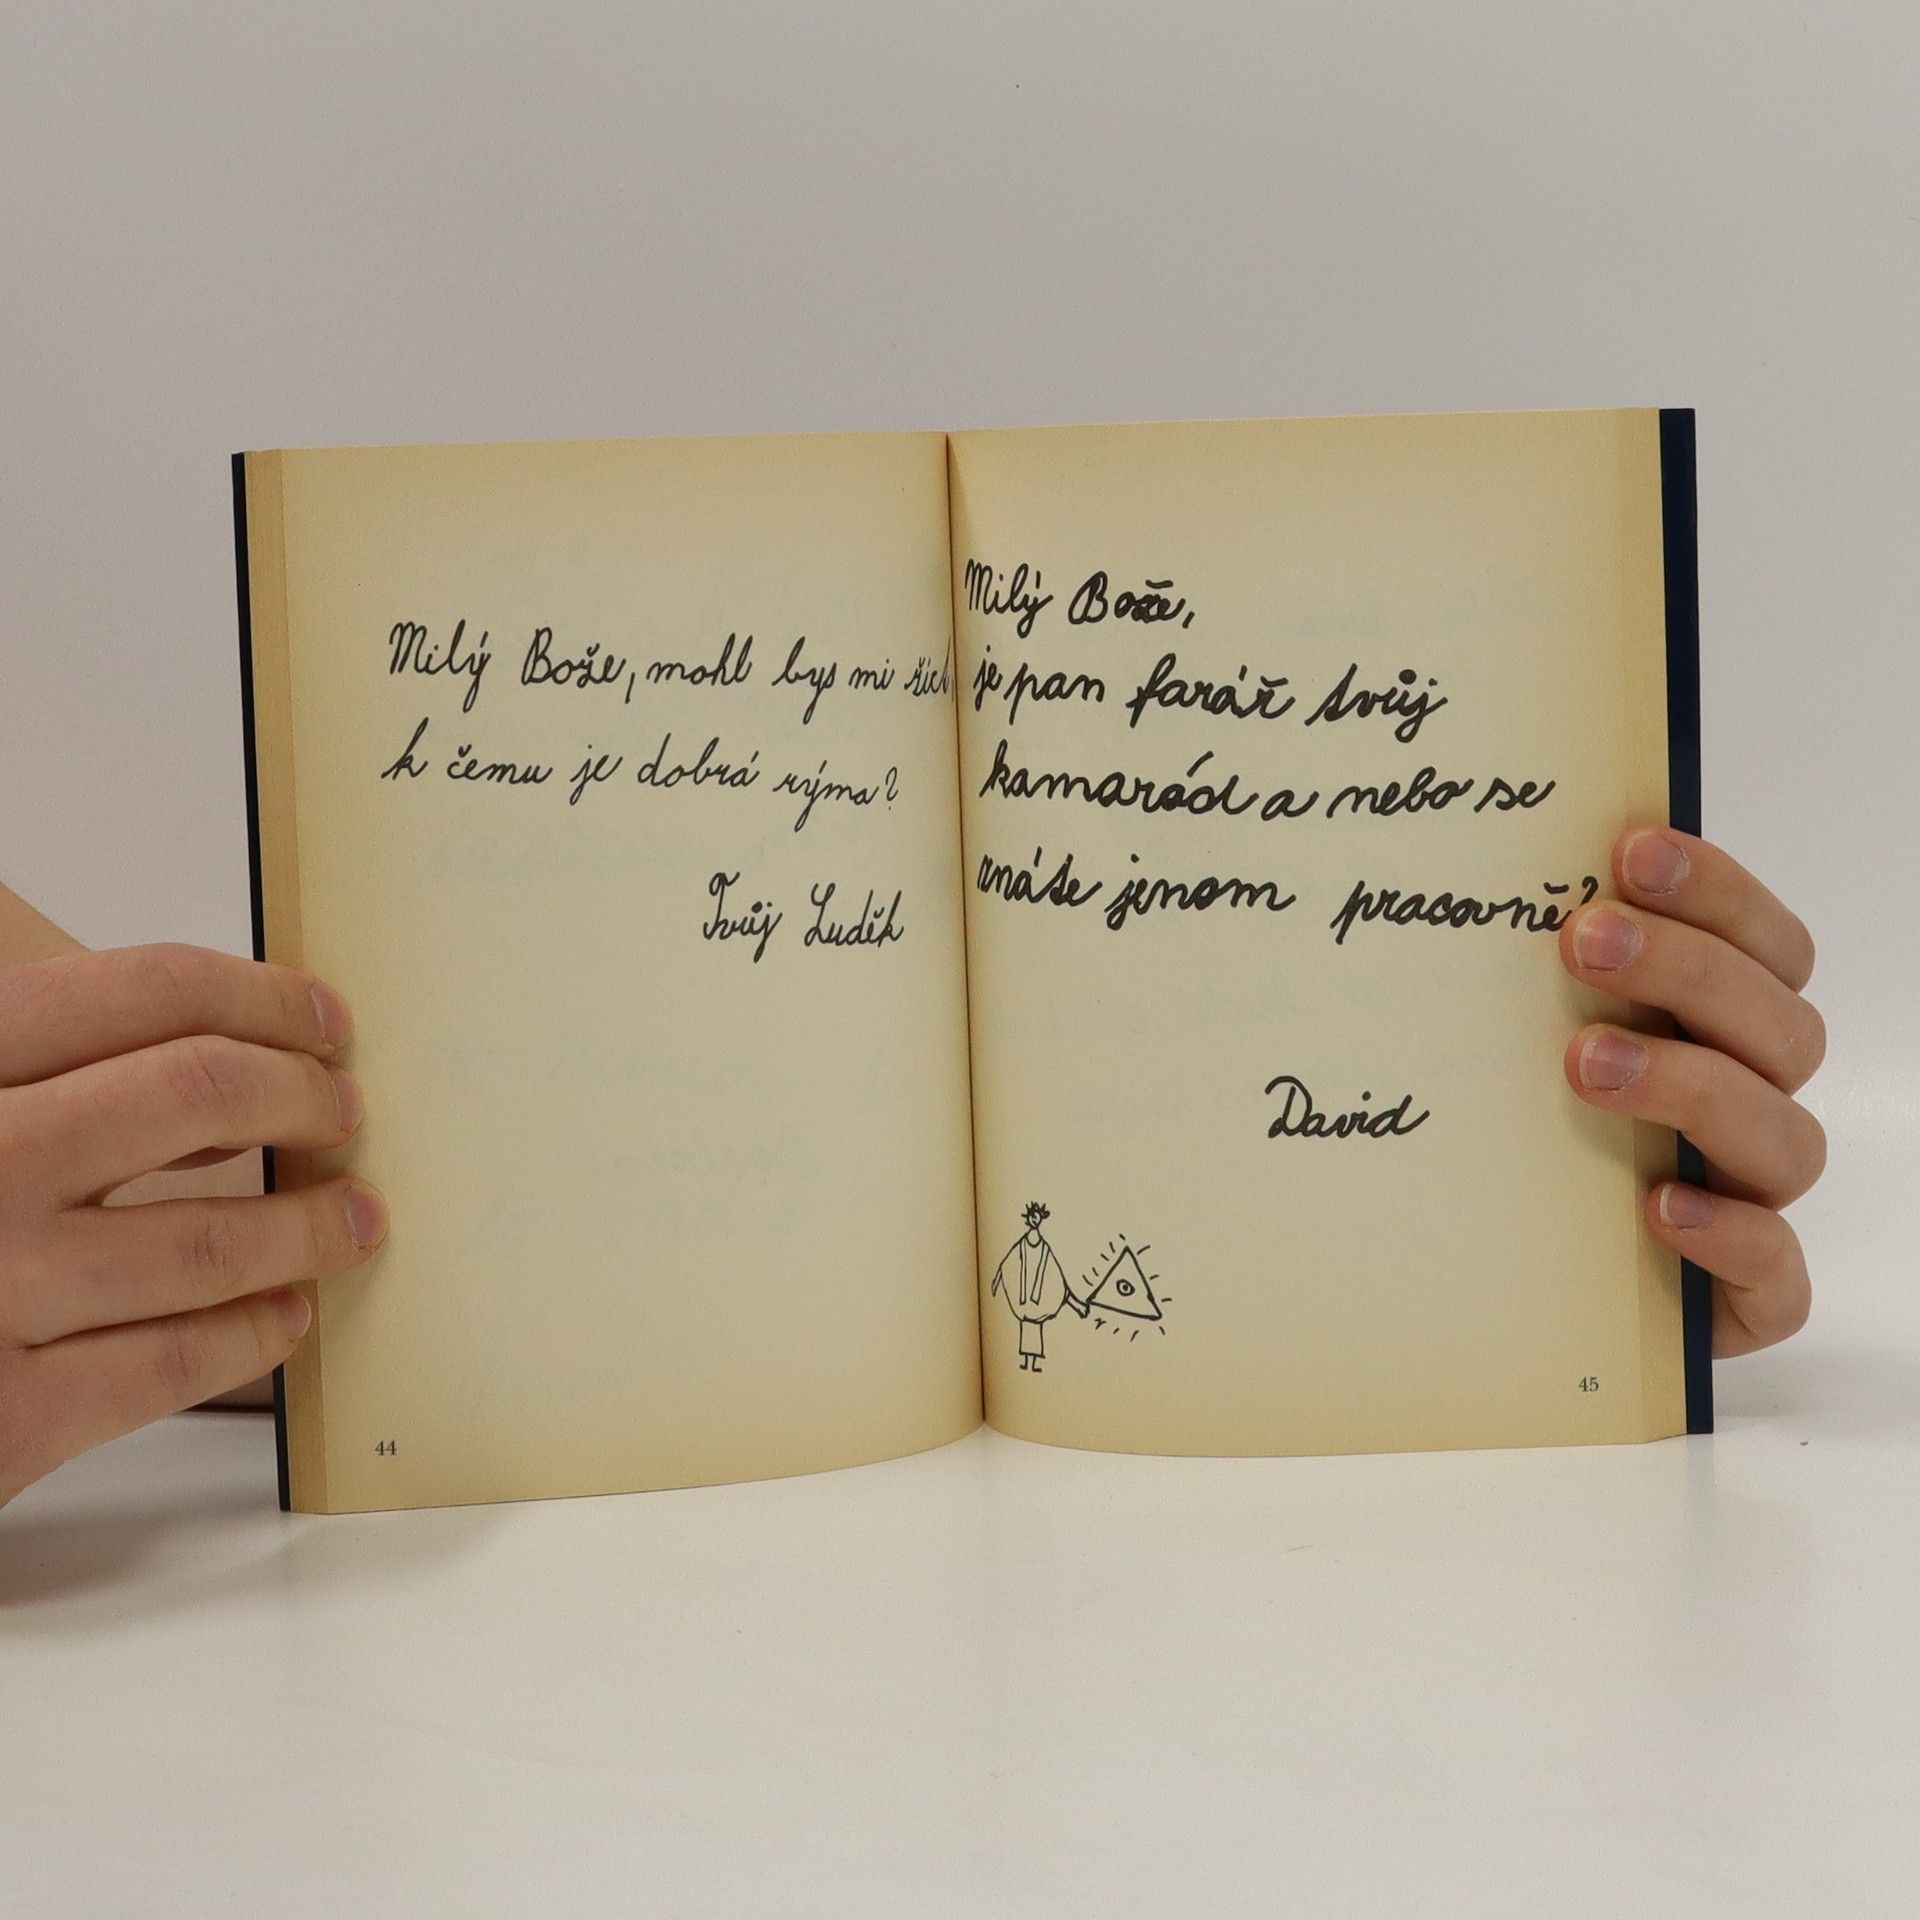 Milý Bože, mohl bys mi říct,
k čemu je dobrá rýma?
Tvůj Luděk
44
Milý Bože,
je pan farář tvůj
kamarád a nebo se
znáte jenom pracovně?
David
45